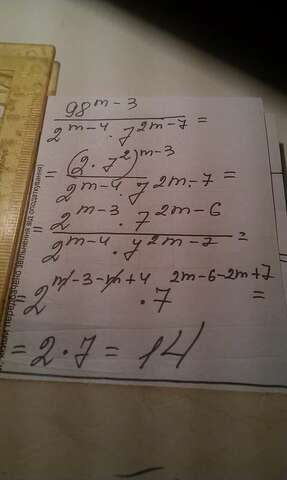 98^{m-3}
2^{m-4} · 7^{2m-7} =
= (2·7²)^{m-3}
2^{m-4} · 7^{2m-7} =
= 2^{m-3} · 7^{2m-6}
2^{m-4} · 7^{2m-7} =
= 2^{m-3-m+4} · 7^{2m-6-2m+7} =
= 2·7 = 14